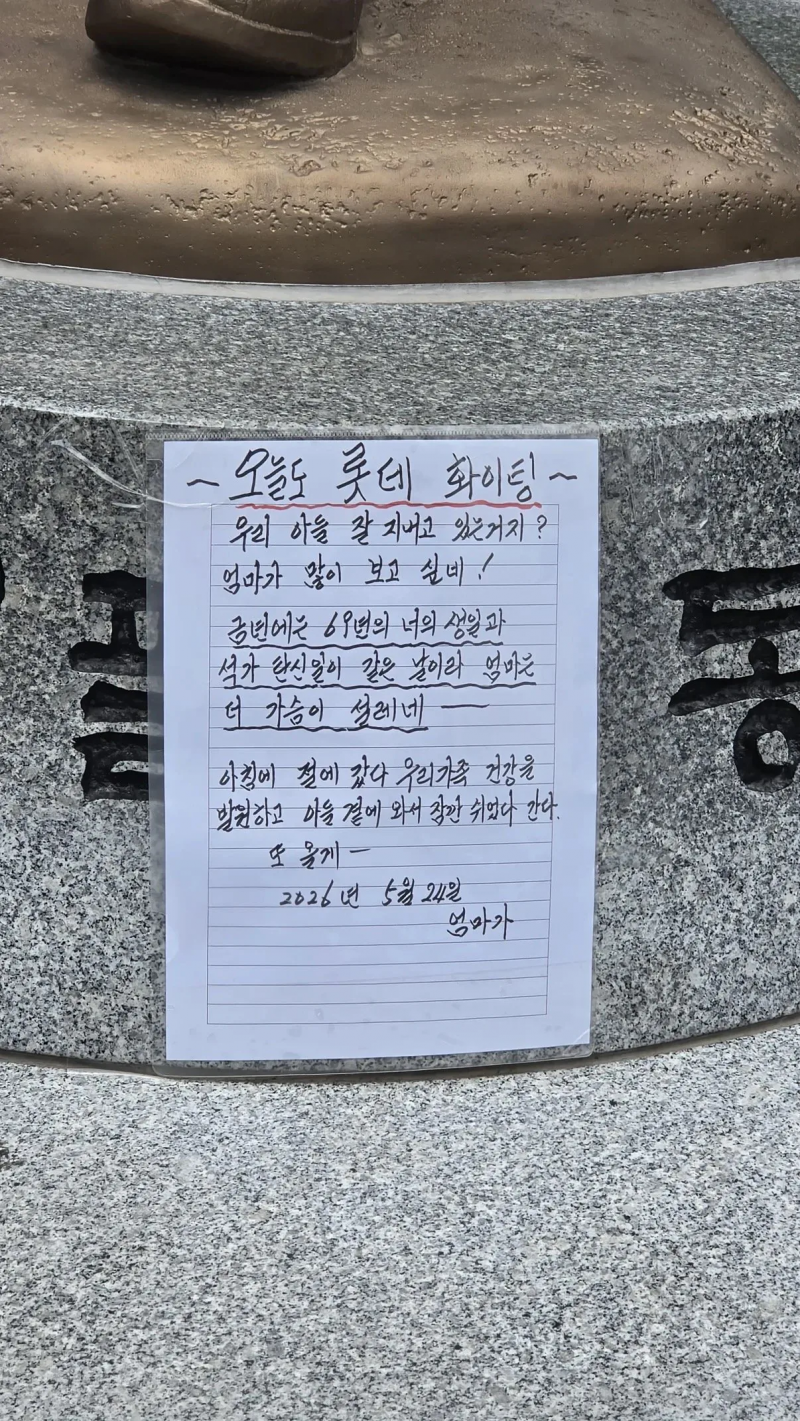 ~ 오늘도 롯데 화이팅 ~
우리 아들 잘 지내고 있는거지?
엄마가 많이 보고 싶네!
금년에는 69년의 너의 생일과
석가 탄신일이 같은 날이라 엄마는
더 가슴이 설레네 —
아침에 절에 갔다 우리가족 건강을
발원하고 아들 곁에 와서 잠깐 쉬었다 간다.
또 올게 —
2026년 5월 24일
엄마가